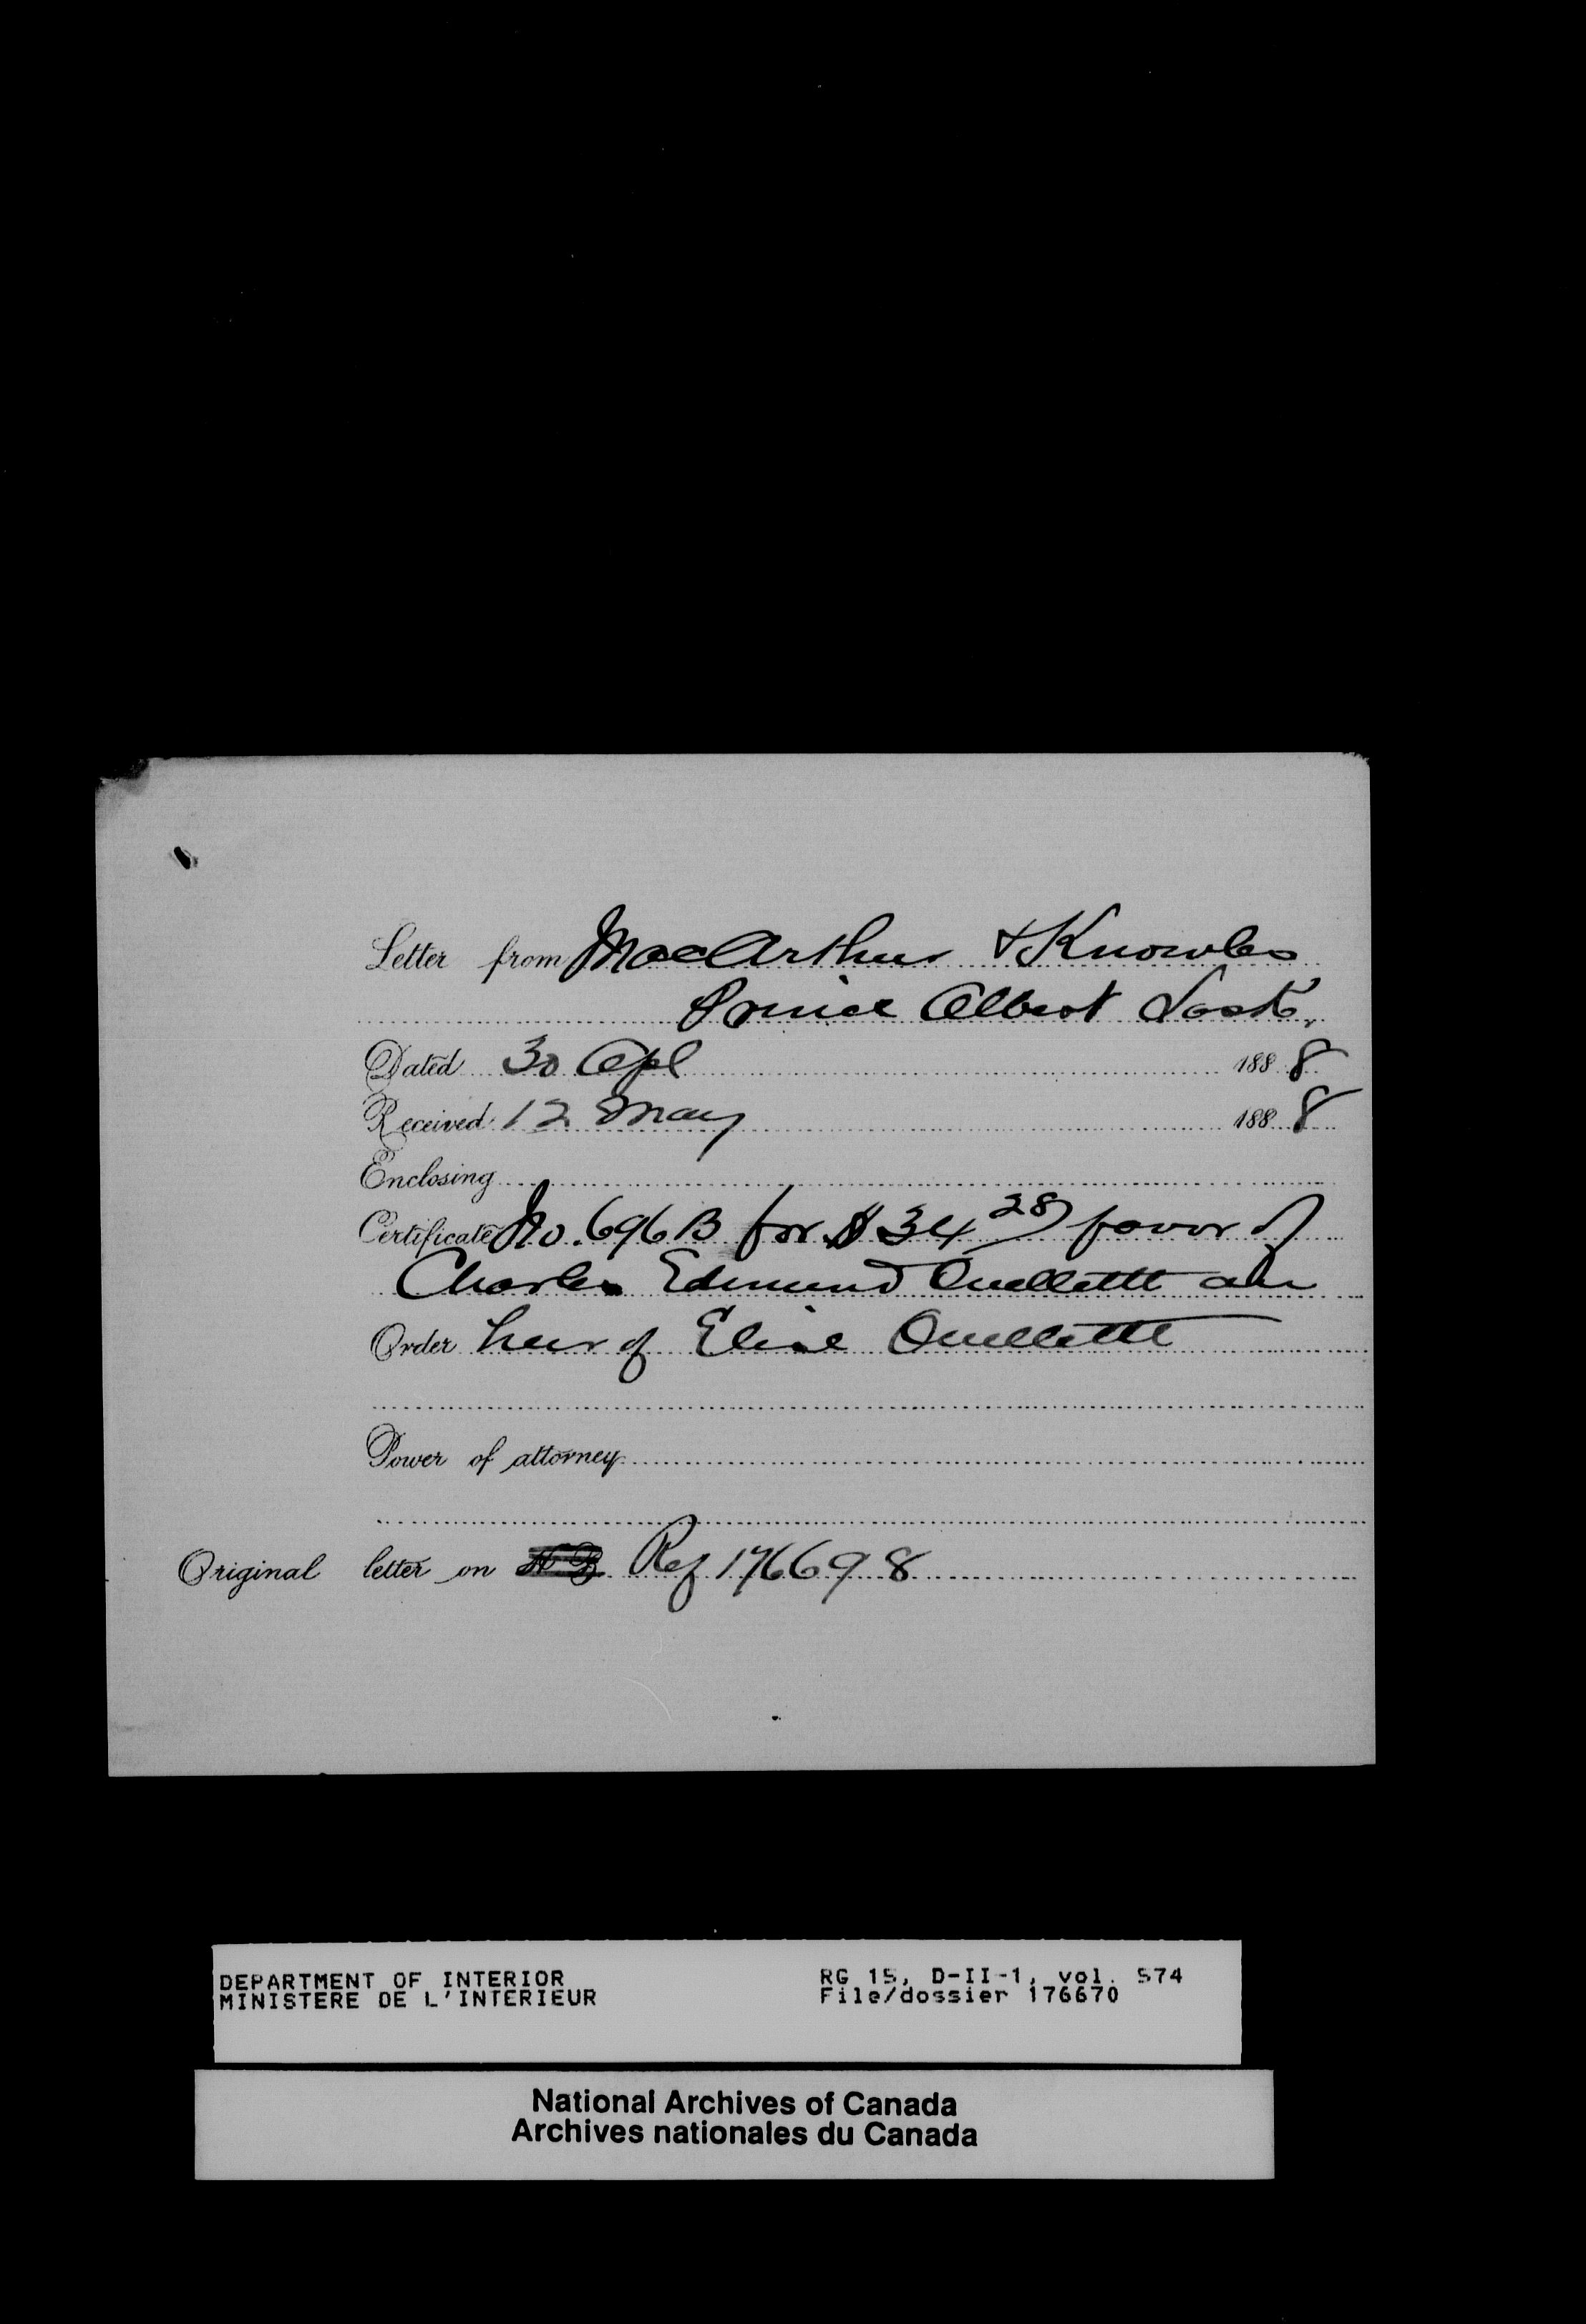 Letter from MacArthur & Knowles
Prince Albert Sask.
Dated 30 Apl 1888
Received 12 May 1888
Enclosing
Certificate No. 696 B for $34 28 favor of
Charles Edmund Ouellette an
Order heir of Elise Ouellette
Power of attorney
Original letter on Ref 176698
DEPARTMENT OF INTERIOR RG 15, D-II-1, vol. 574
MINISTERE DE L'INTERIEUR File/dossier 176670
National Archives of Canada
Archives nationales du Canada